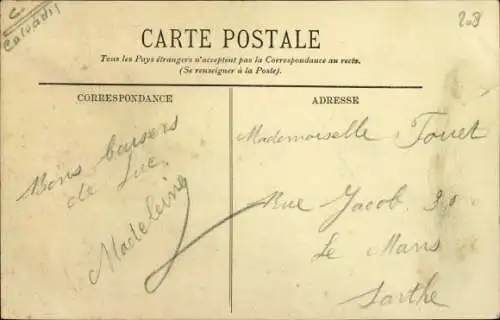 Calvados
208
CARTE POSTALE
Tous les Pays étrangers n'acceptent pas la Correspondance au recto.
(Se renseigner à la Poste).
CORRESPONDANCE
ADRESSE
Bons baisers
de Luc.
Madeleine
Mademoiselle Touet
Rue Jacob
Le Mans
Sarthe